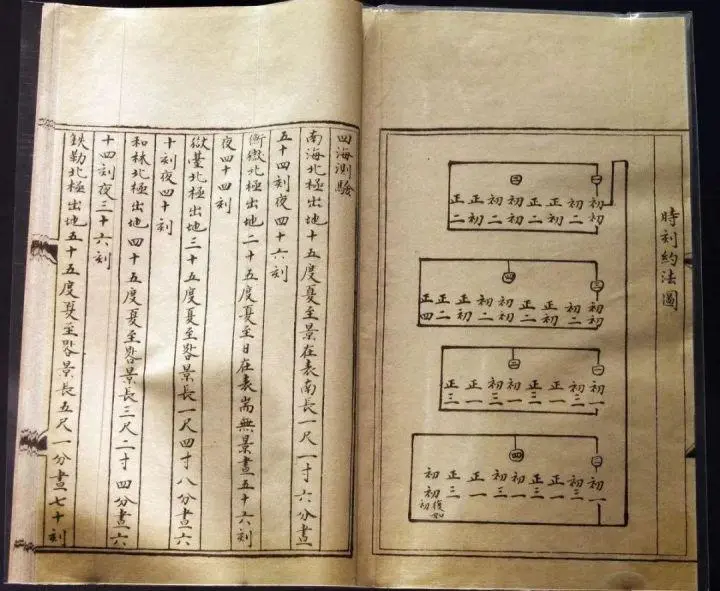 時刻約法圖
一
三
初初 初二 正初 正二 初初 初二 正初 正二
三
四
初初 初二 正初 正二 初初 初二 正初 正二 正四
一
二
初一 初三 正一 正三 初一 初三 正一 正三
二
四
初一 初三 正一 正三 初一 初三 正一 正三 初初
復如初
四海測驗
南海北極出地十五度夏至景在表南長一尺一寸六分晝
五十四刻夜四十六刻
衡嶽北極出地二十五度夏至日在表耑無景晝五十六刻
夜四十四刻
嶽臺北極出地三十五度夏至晷景長一尺四寸八分晝六
十刻夜四十刻
和林北極出地四十五度夏至晷景長三尺二寸四分晝六
十四刻夜三十六刻
銕勒北極出地五十五度夏至晷景長五尺一分晝七十刻